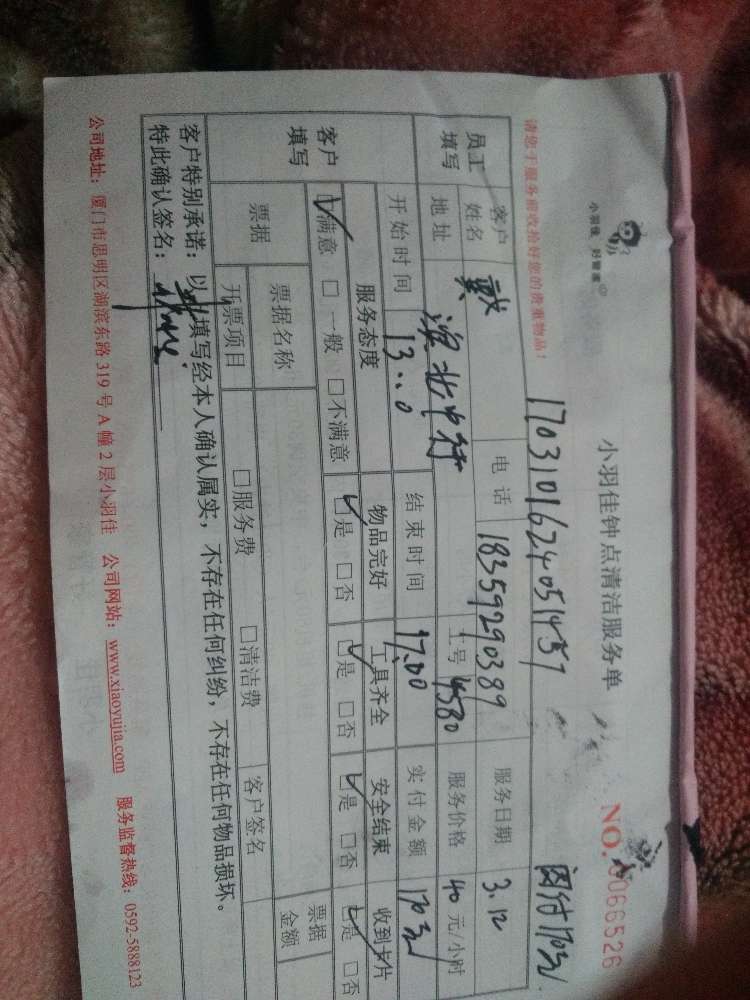 小羽佳 好管家
小羽佳钟点清洁服务单
NO. 0066526
请您于服务前收拾好您的贵重物品！
1703101624051437
闵付170元
员工填写
客户姓名
戴
电话 18359290389
服务日期 3.12
地址 滨北中行
工号 4580
服务价格 40 元/小时
开始时间 13..0
结束时间 17.00
实付金额 170元
客户填写
服务态度
物品完好
工具齐全
安全结束
收到卡片
☑满意 □ 一般 □ 不满意
☑是 □否
☑是 □否
☑是 □否
☑是 □否
票据
票据名称
客户签名
票据金额
开票项目
□服务费
□清洁费
客户特别承诺：以上填写经本人确认属实，不存在任何纠纷，不存在任何物品损坏。
特此确认签名：
公司地址：厦门市思明区湖滨东路 319 号 A 幢 2 层小羽佳 公司网站：www.xiaoyujia.com 服务监督热线：0592-5888123